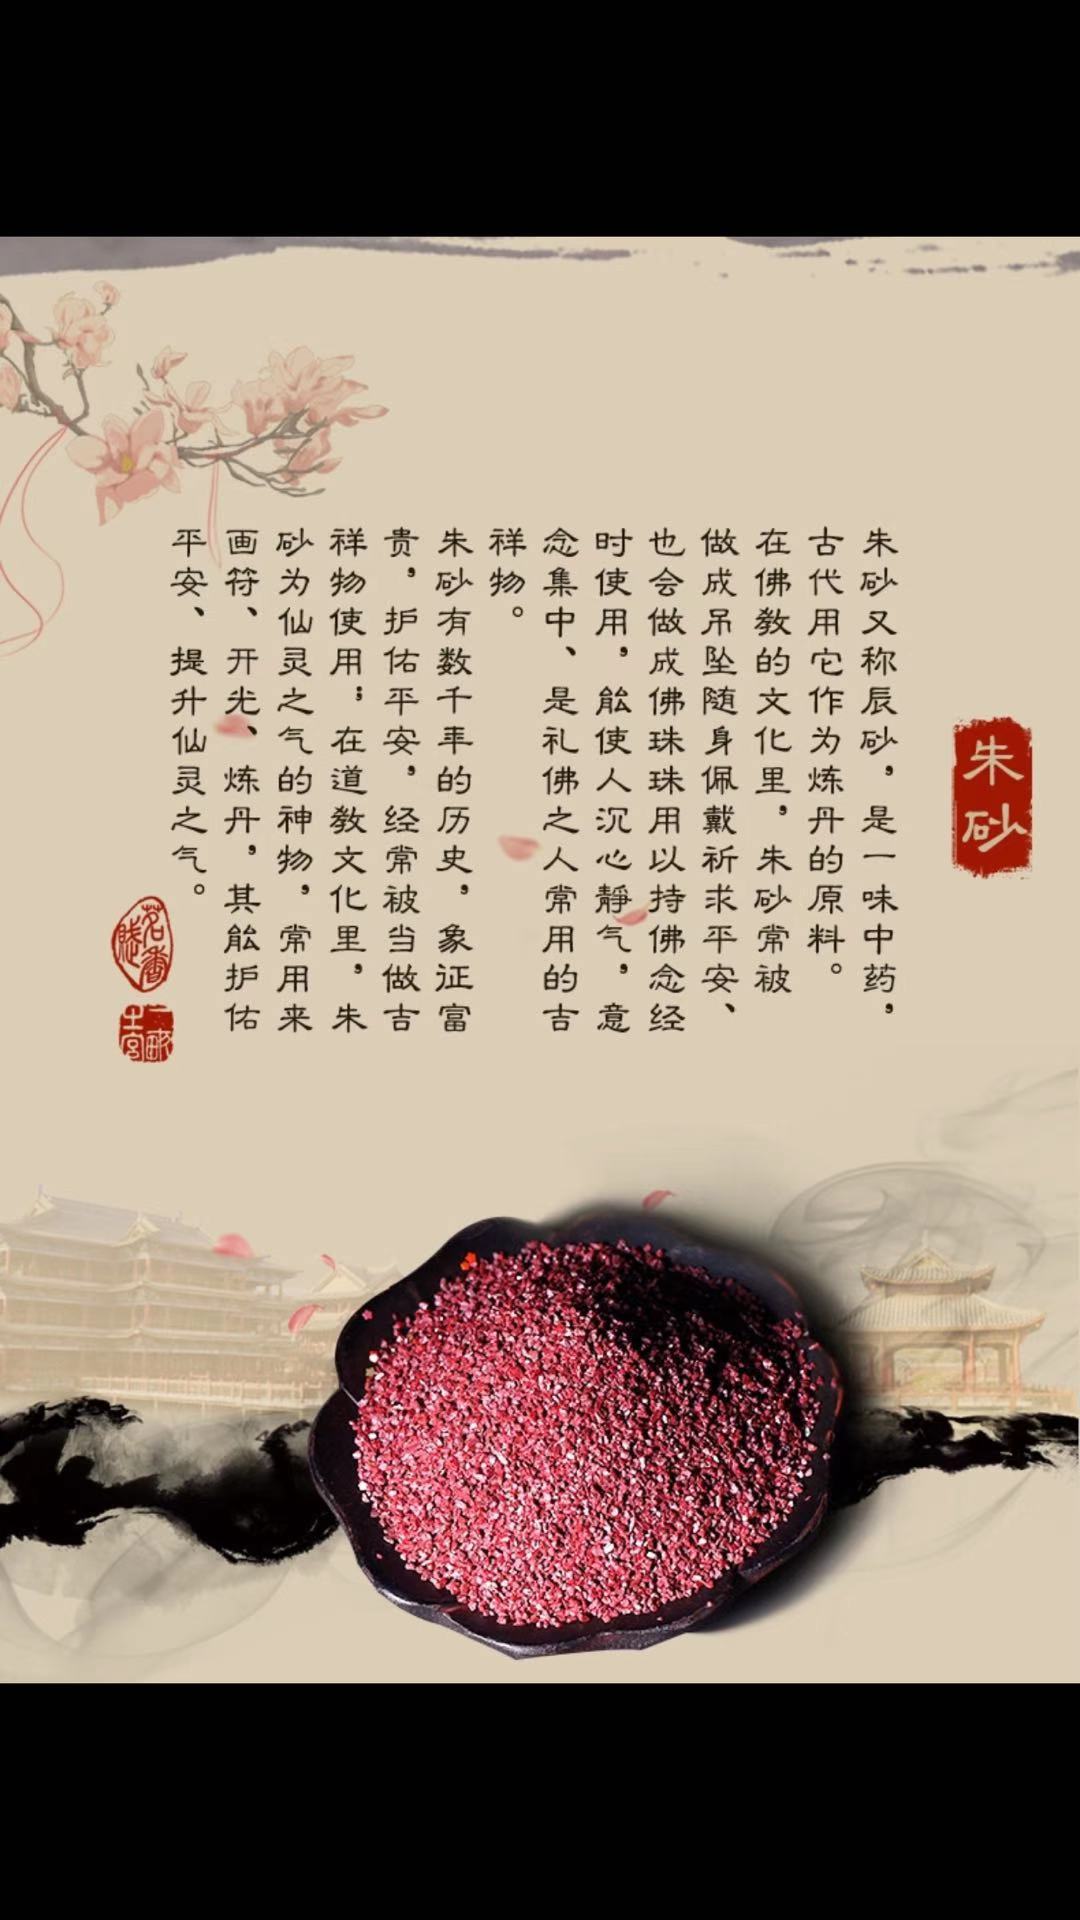 朱砂
朱砂又称辰砂，是一味中药，
古代用它作为炼丹的原料。
在佛教的文化里，朱砂常被
做成吊坠随身佩戴祈求平安、
也会做成佛珠珠用以持佛念经
时使用，能使人沉心静气，意
念集中、是礼佛之人常用的吉
祥物。
朱砂有数千年的历史，象征富
贵，护佑平安，经常被当做吉
祥物使用；在道教文化里，朱
砂为仙灵之气的神物，常用来
画符、开光、炼丹，其能护佑
平安、提升仙灵之气。